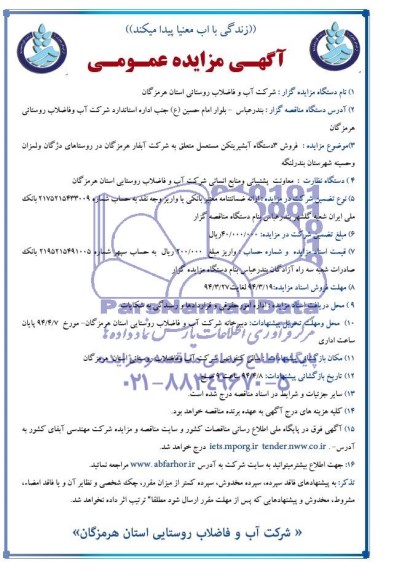 ((زندگی با اب معنیا پیدا میکند))
آگهی مزایده عمومی
۱) نام دستگاه مزایده گزار : شرکت آب و فاضلاب روستائی استان هرمزگان
۲) آدرس دستگاه مناقصه گزار : بندرعباس - بلوار امام حسین (ع) جنب اداره استاندارد شرکت آب وفاضلاب روستایی
هرمزگان
۳)موضوع مزایده : فروش ۳دستگاه آبشیرینکن مستعمل متعلق به شرکت آبفار هرمزگان در روستاهای دژگان ولمزان
وحسینه شهرستان بندرلنگه
۴ ) دستگاه نظارت : معاونت پشتیبانی ومنابع انسانی شرکت آب و فاضلاب روستایی استان هرمزگان
۵) نوع تضمین شرکت در مزایده: ارائه ضمانتنامه معتبر بانکی یا واریز وجه نقد به حساب شماره ۲۱۷۵۲۱۵۴۳۳۰۰۹ بانک
ملی ایران شعبه گلشهر بندرعباس بنام دستگاه مناقصه گزار
۶) مبلغ تضمین شرکت در مزایده: ۴۰/۰۰۰/۰۰۰ریال
۷) قیمت اسناد مزایده و شماره حساب : واریز مبلغ ۲۰۰/۰۰۰ ریال به حساب سپهر شماره ۲۱۹۵۲۱۵۴۹۱۰۰۵ بانک
صادرات شعبه سه راه آزادگان بندرعباس بنام دستگاه مزایده گزار
۸) مهلت فروش اسناد مزایده:۹۴/۳/۱۹ لغایت ۹۴/۳/۲۷
۹ ) محل دریافت اسناد مزایده: اداره امور حقوقی و قراردادها و رسیدگی به شکایات
۱۰) محل ومهلت تحویل پیشنهادات: دبیرخانه شرکت آب و فاضلاب روستایی استان هرمزگان- مورخ ۹۴/۴/۷ پایان
ساعت اداری
۱۱) مکان بازگشائی پیشنهادات: سالن کنفرانس شرکت آب وفاضلاب روستائی استان هرمزگان
۱۲) تاریخ بازگشائی پیشنهادات: ۹۴/۴/۸ ساعت ۹ صبح
۱۳) سایر جزئیات و شرایط در اسناد مناقصه درج شده است.
۱۴) کلیه هزینه های درج آگهی به عهده برنده مناقصه خواهد بود.
۱۵) آگهی فوق در پایگاه ملی اطلاع رسانی مناقصات کشور و سایت مناقصه و مزایده شرکت مهندسی آبفای کشور به
آدرس-. iets.mporg.ir tender.nww.co.ir درج خواهد شد.
۱۶: جهت اطلاع بیشترمیتوانید به سایت شرکت به آدرس www.abfarhor.ir مراجعه نمائید.
تذکر: به پیشنهادهای فاقد سپرده، سپرده مخدوش، سپرده کمتر از میزان مقرر، چک شخصی و نظایر آن و یا فاقد امضاء،
مشروط، مخدوش و پیشنهادهایی که پس از مهلت مقرر ارسال شود مطلقا" ترتیب اثر داده نخواهد شد.
« شرکت آب و فاضلاب روستایی استان هرمزگان»
ParsNamadData
مرکز فرآوری اطلاعات پارس نماد داده ها
۰۲۱-۸۸۳۴۹۶۷۰-۵